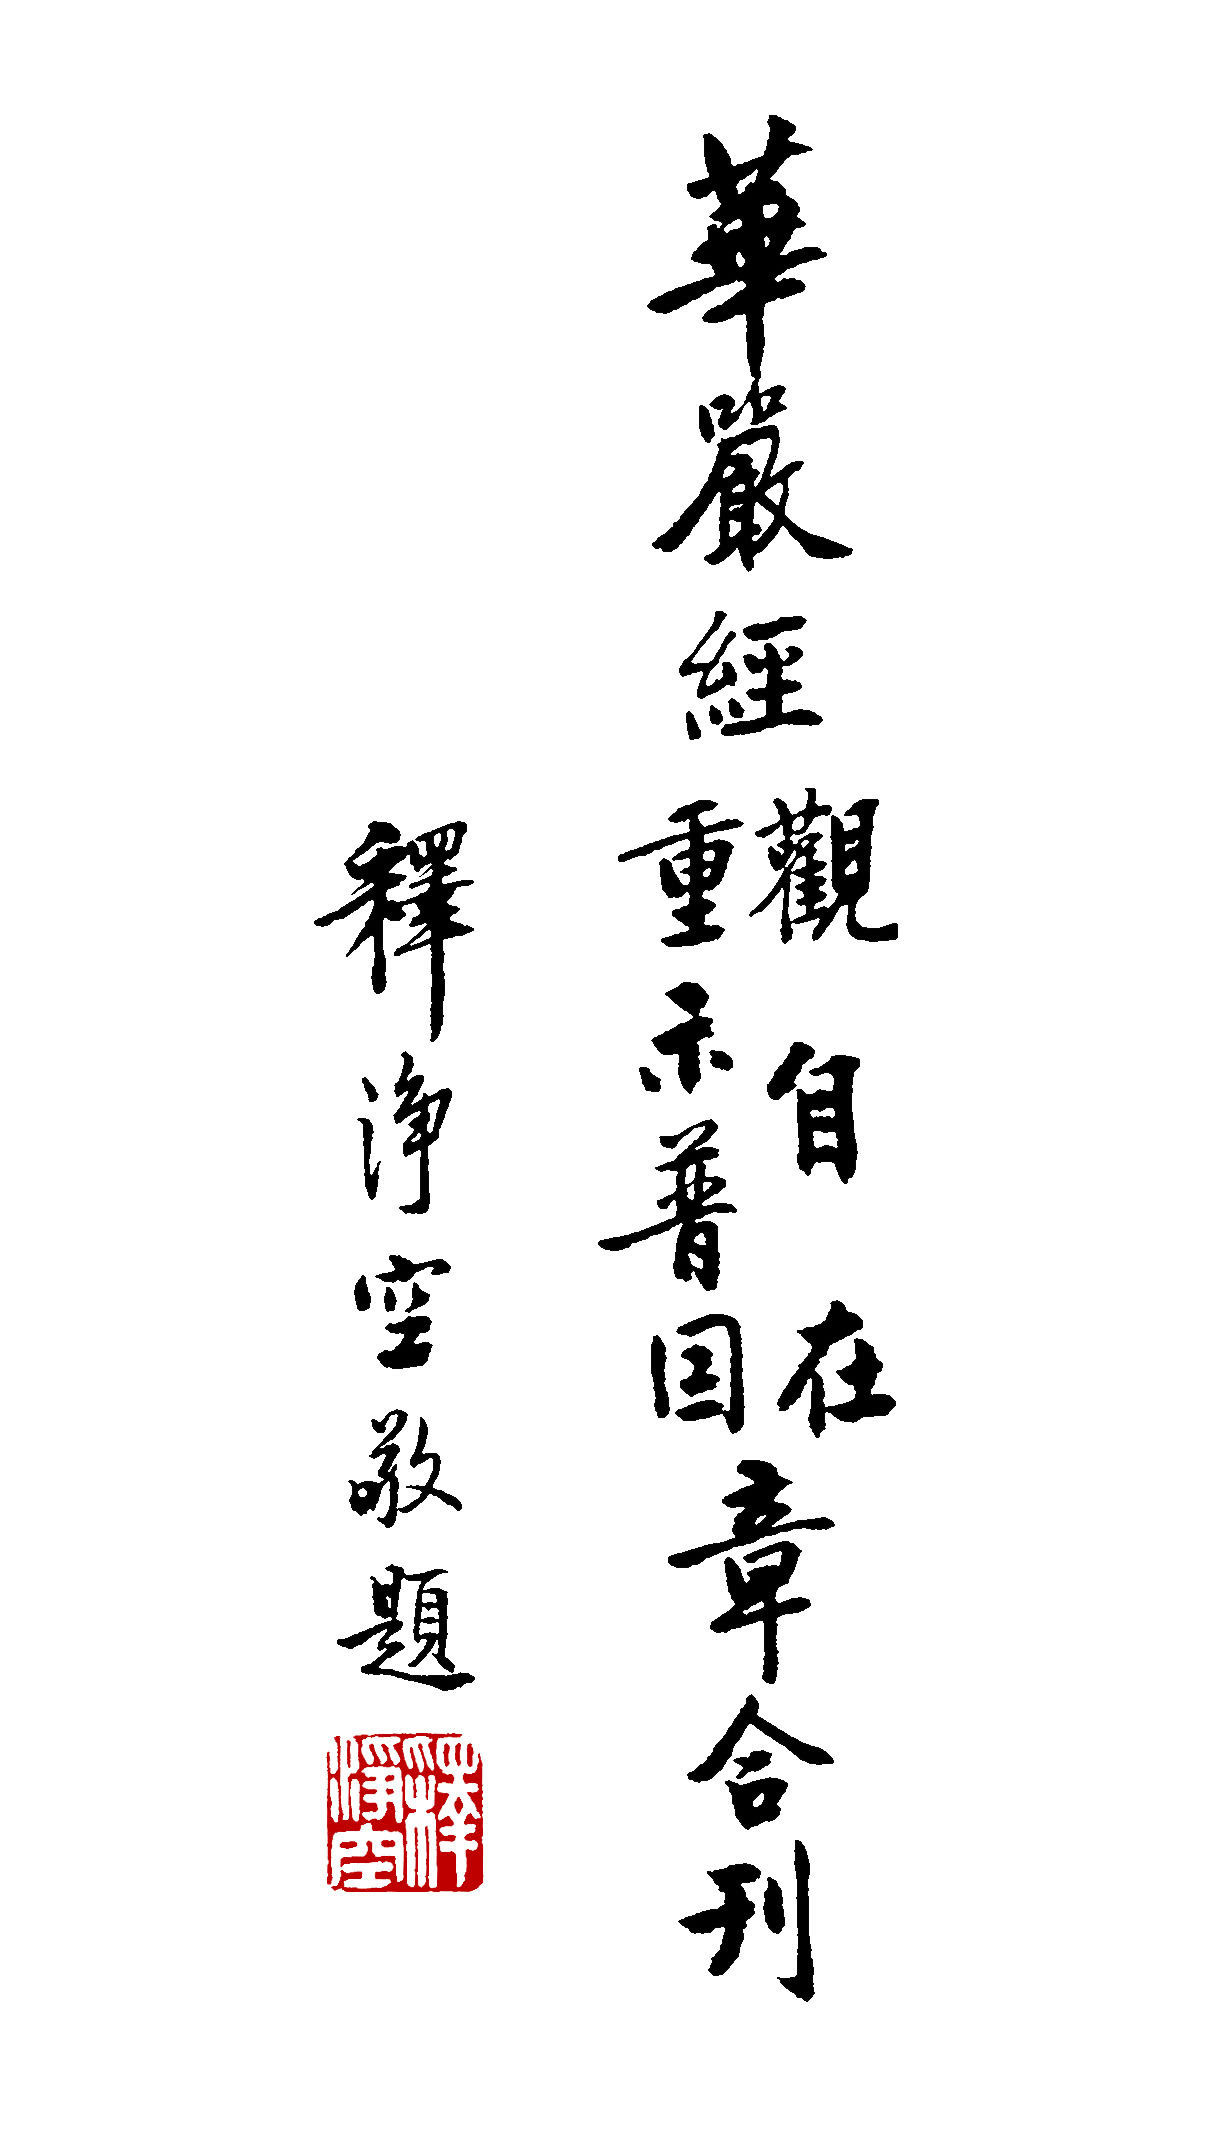 華嚴經
觀自在
重示普因
章合刊
釋淨空敬題
釋淨空